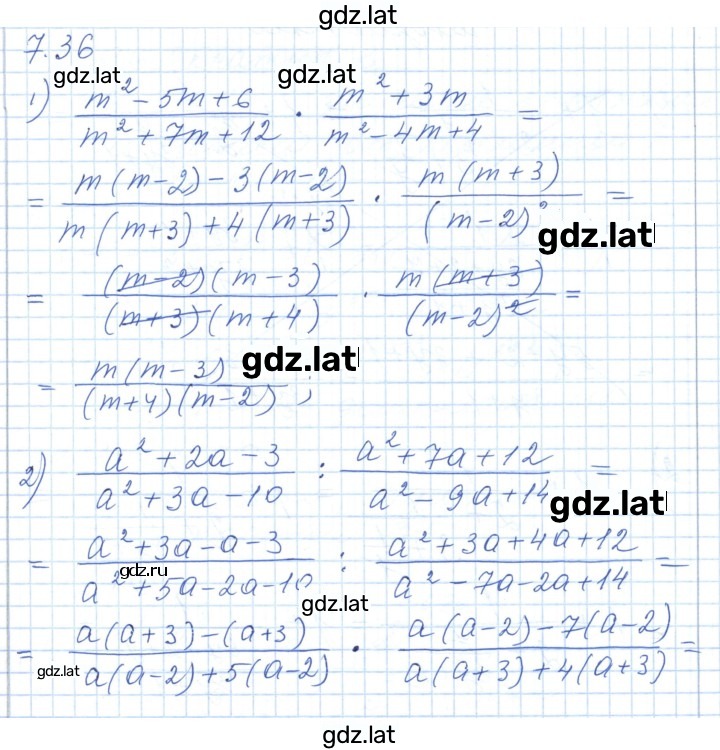 gdz.lat
7.36
gdz.lat gdz.lat
1) (m² - 5m + 6)/(m² + 7m + 12) · (m² + 3m)/(m² - 4m + 4) =
= (m(m-2) - 3(m-2))/(m(m+3) + 4(m+3)) · (m(m+3))/((m-2)²) =
gdz.lat
= ((m-2)(m-3))/((m+3)(m+4)) · (m(m+3))/((m-2)²) =
= (m(m-3))/((m+4)(m-2)) ;
gdz.lat
2) (a² + 2a - 3)/(a² + 3a - 10) : (a² + 7a + 12)/(a² - 9a + 14) =
gdz.lat
= (a² + 3a - a - 3)/(a² + 5a - 2a - 10) : (a² + 3a + 4a + 12)/(a² - 7a - 2a + 14) =
gdz.ru
gdz.lat
= (a(a+3) - (a+3))/(a(a-2) + 5(a-2)) · (a(a-2) - 7(a-2))/(a(a+3) + 4(a+3)) =
gdz.lat
gdz.lat